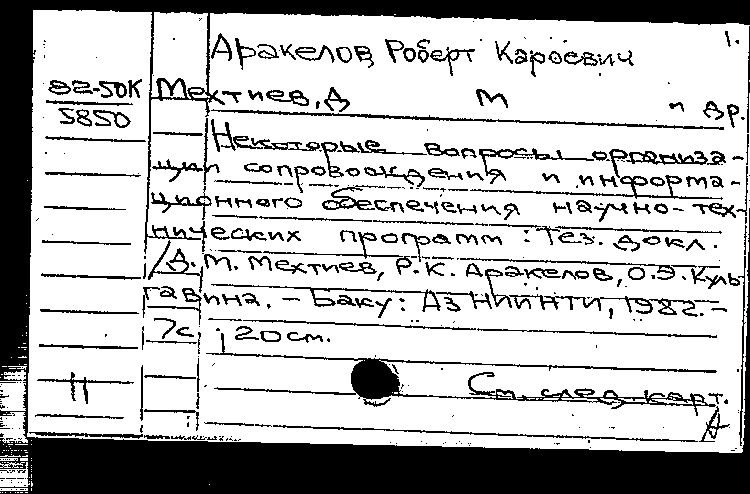 1.
Аракелов, Роберт Кароевич
82-50К Мехтиев, Д М и др.
5850
Некоторые вопросы организа-
ции сопровождения и информа-
ционного обеспечения научно-тех-
нических программ : Тез. докл.
/Д. М. Мехтиев, Р. К. Аракелов, О. Э. Куль-
гавина. – Баку : АзНИИНТИ, 1982. –
7с ; 20 см.
11 См. след. карт.
А